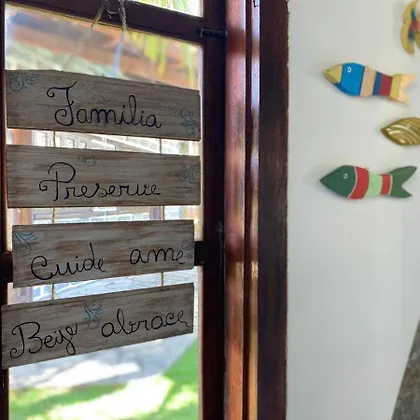 Familia
Preserve
Cuide ame
Beije abrace